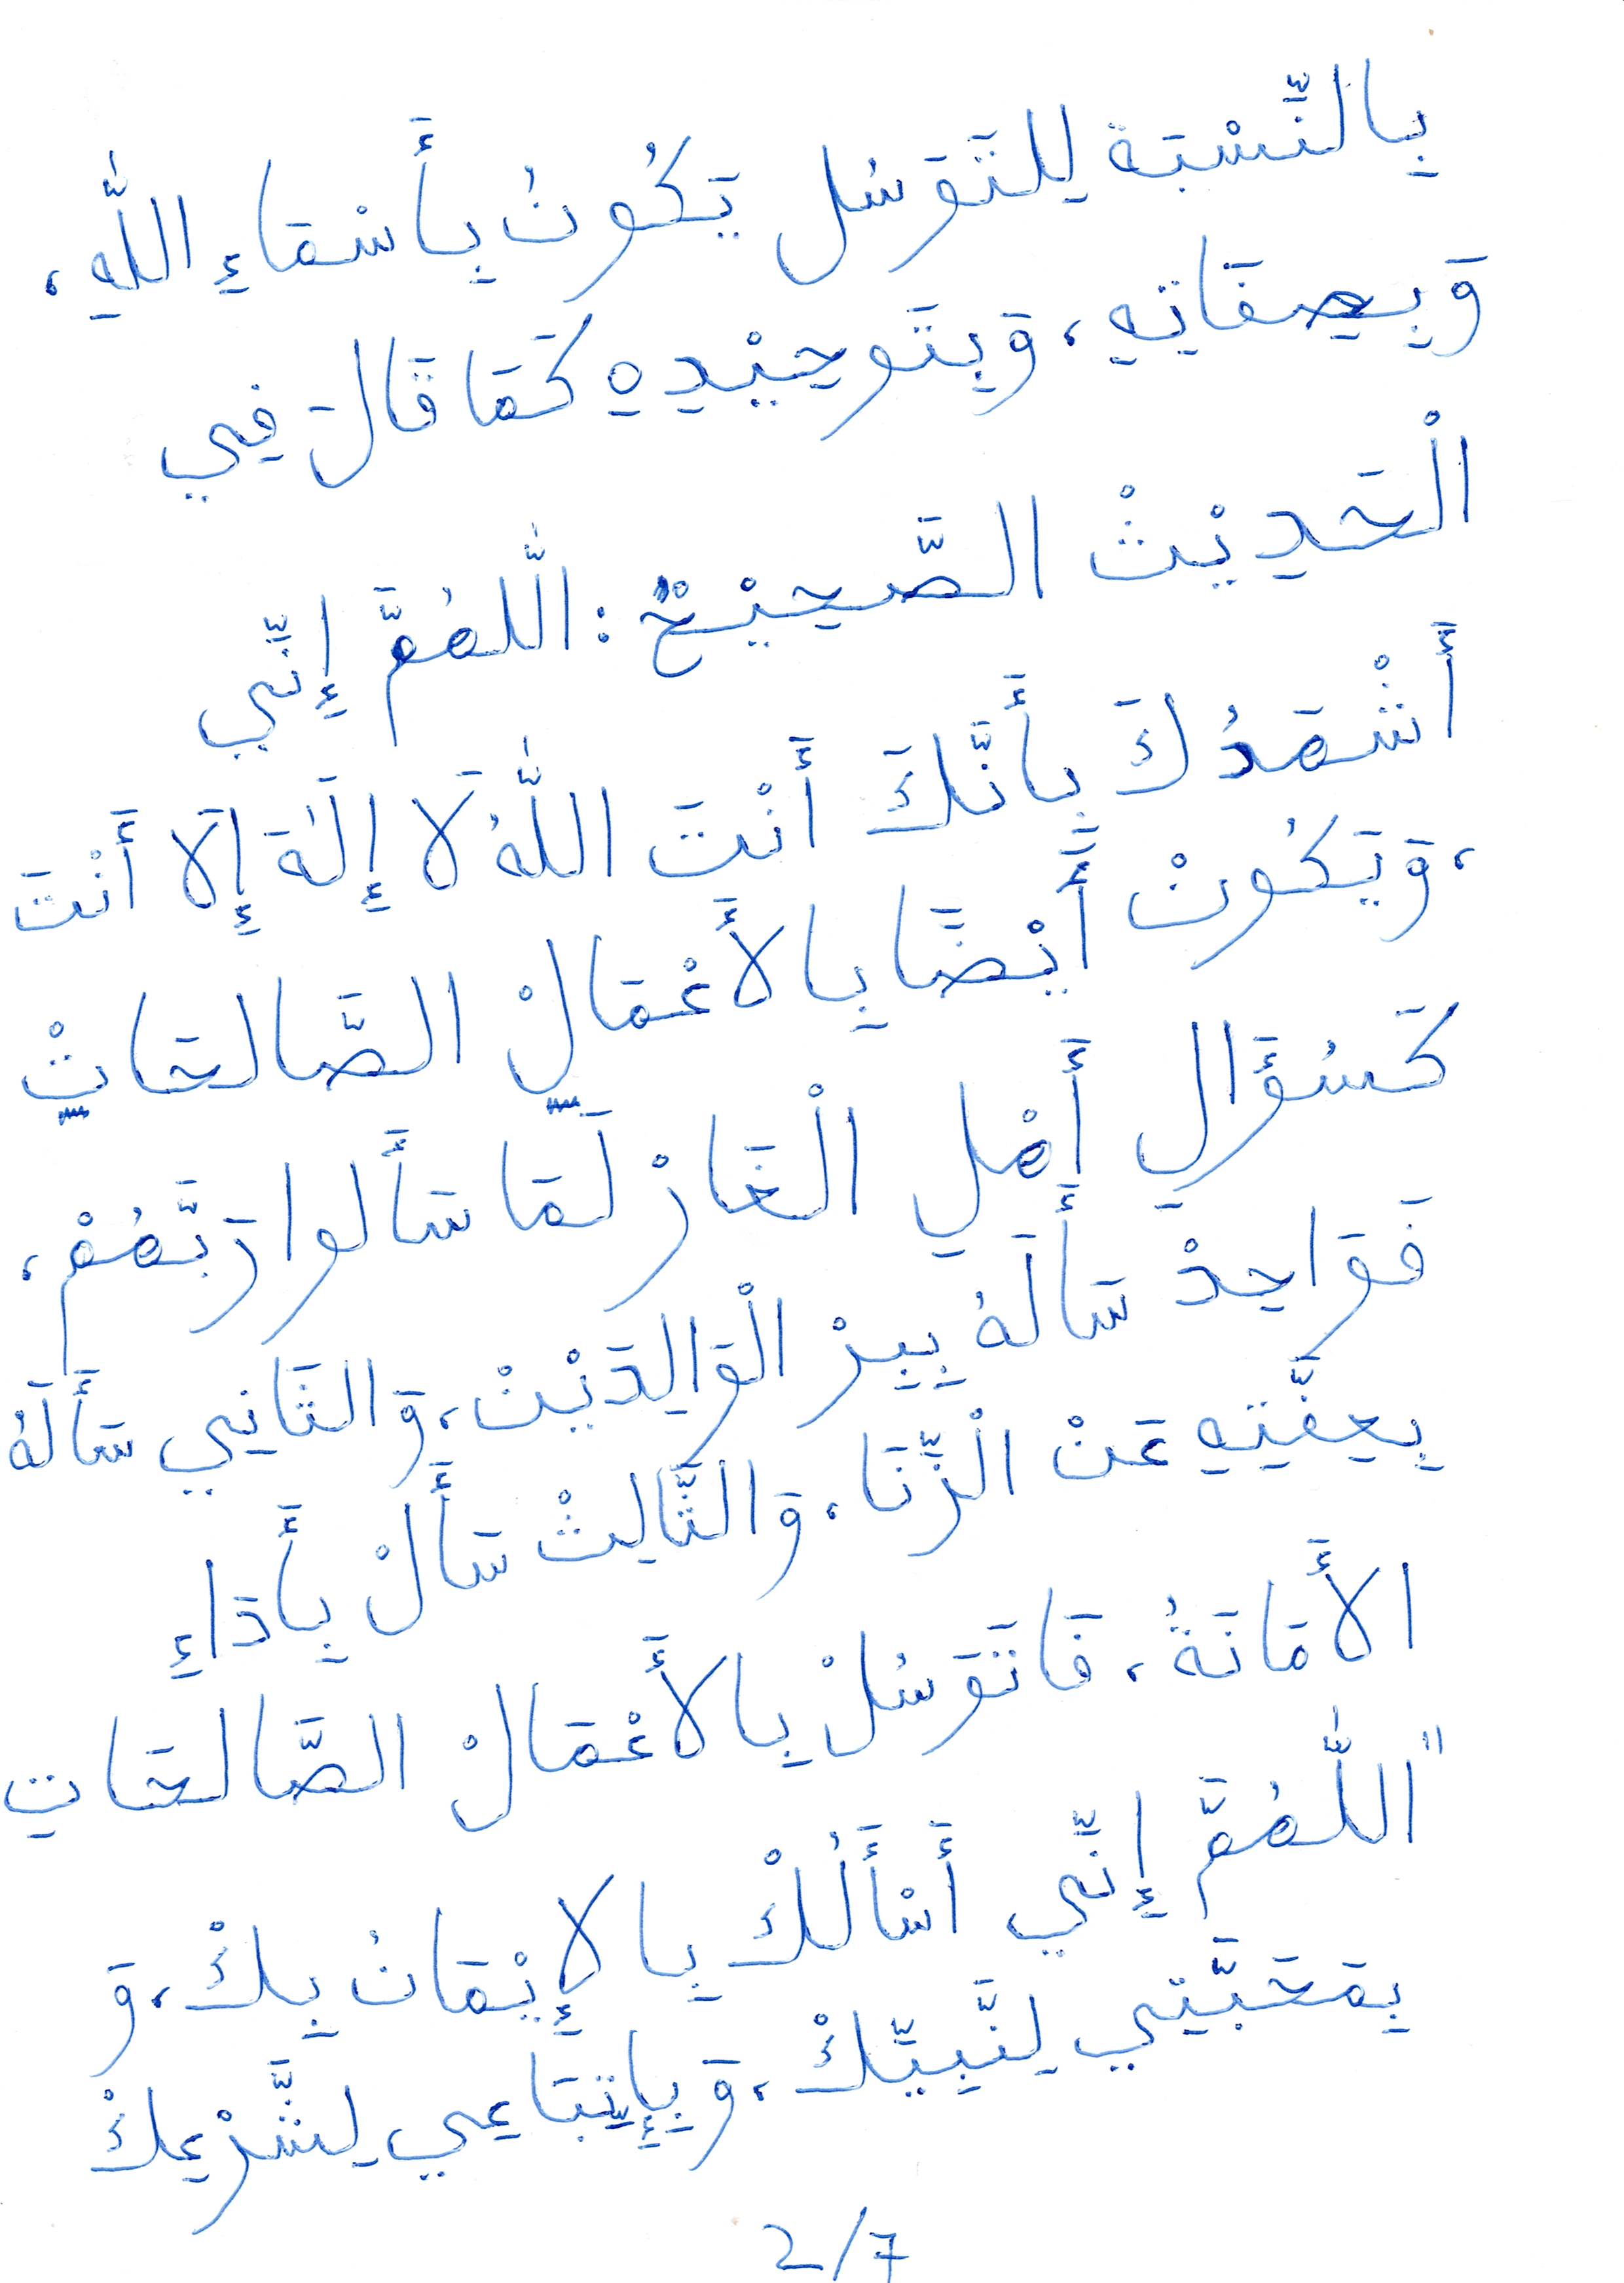 بِالنِّسْبَة لِلتَّوَسُل يَكُونُ بِأَسْمَاءِ اللَّهِ،
وَبِصِفَاتِهِ، وَبِتَوحِيْدِهِ كَمَا قَالَ فِي
الْحَدِيْثْ الصَّحِيْحْ: اللَّهُمَّ إِنِّي
أَشْهَدُكَ بِأَنَّكَ أَنْتَ اللَّهُ لَا إِلَهَ إِلَا أَنْتَ
،وَيَكُونْ أَيْضَّا بِالأَعْمَالْ الصَّالحَاتْ
كَسُؤَالِ أَهْلِ الْغَارْ لَمَا سَأَلوا رَبَّهُمْ،
فَوَاحِدْ سَأَلَهُ بِبِرْ الْوَالِدَيْنْ، وَالثَانِي سَأَلَهُ
بِعِفَّتِهِ عَنْ الْزِّنَا، وَالثَّالِثْ سَأَلْ بِأَدَاءِ
الأَمَانَةُ، فَاتَوَسُلْ بِالأَعْمَالْ الصَّالحَاتِ
"اللَّهُمَّ إِنِّي أَسْأَلُكْ بِالإِيْمَانُ بِكْ، وَ
بِمَحَبَّتِي لِنَّبِيِّكْ، وَبِإِتِّبَاعِي لِشَّرْعِكْ
2/7